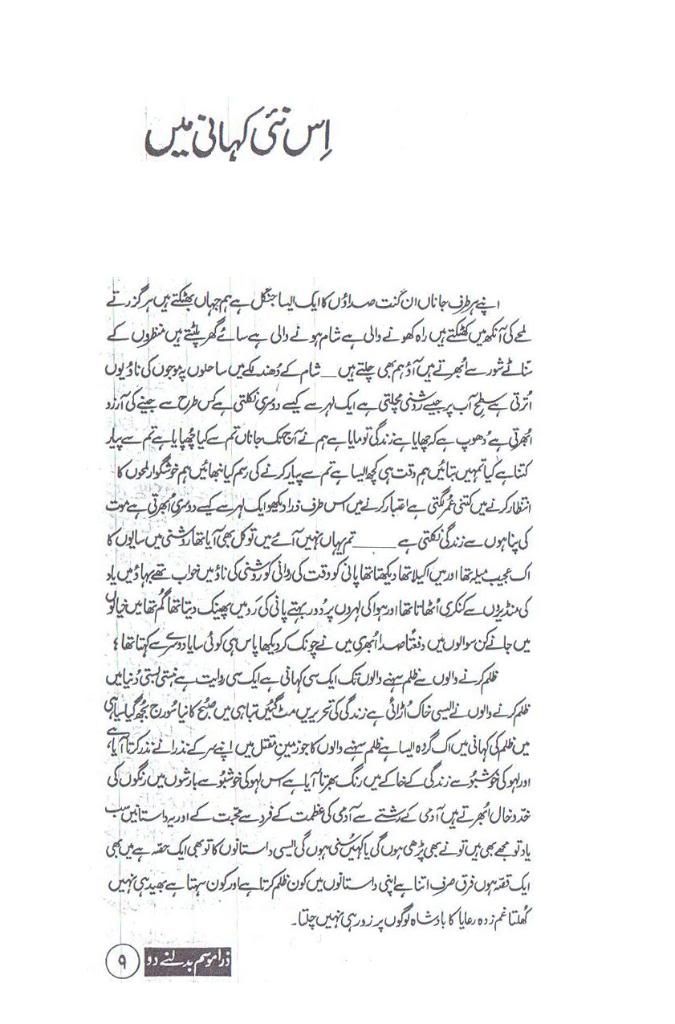 اِس نئی کہانی میں
اپنے ہر طرف جاناں ان گنت صداؤں کا ایک ایسا جنگل ہے ہم جہاں بھٹکتے ہیں ہر گزرتے
لمحے کی آنکھ میں کھٹکتے ہیں راہ کھونے والی ہے شام ہونے والی ہے سائے گھر پلٹتے ہیں منظروں کے
سناٹے شور سے اُبھرتے ہیں آؤ ہم بھی چلتے ہیں ــ شام کے دُھندلکے میں ساحلوں پہ موجوں کی ناؤ یوں
اُترتی ہے سطحِ آب پر جیسے روشنی مچلتی ہے ایک لہر سے کیسے دوسری نکلتی ہے کس طرح سے جینے کی آرزو
اُبھرتی ہے دُھوپ ہے کہ چھایا ہے زندگی تو مایا ہے ہم نے آج تک جاناں تم سے کیا چُھپایا ہے تم سے پیار
کتنا ہے کیا تمہیں بتائیں ہم وقت ہی کچھ ایسا ہے تم سے پیار کرنے کی رسم کیا نبھائیں ہم خوشگوار لمحوں کا
انتظار کرنے میں کتنی عُمر لگتی ہے اعتبار کرنے میں اس طرف ذرا دیکھو ایک لہر سے کیسے دوسری اُبھرتی ہے موت
کی پناہوں سے زندگی نکلتی ہے ــــــ تم یہاں نہیں آئے میں تو کل بھی آیا تھا روشنی میں سایوں کا
اک عجیب میلہ تھا اور میں اکیلا تھا دیکھتا تھا پانی کو وقت کی روانی کو روشنی کی ناؤ میں خواب تھے بہاؤ میں یاد
کی منڈیروں سے کنکری اُٹھاتا تھا اور ہوا کی لہروں پر دُور بہتے پانی کی رَو میں پھینک دیتا تھا گم تھا میں خیالوں
میں جانے کن سوالوں میں دفعتاً صدا اُبھری میں نے چونک کر دیکھا پاس ہی کوئی سایا دوسرے سے کہتا تھا ؛
ظلم کرنے والوں سے ظلم سہنے والوں تک ایک سی کہانی ہے ایک سی روایت ہے ہنستی بستی دُنیا میں
ظلم کرنے والوں نے ایسی خاک اُڑائی ہے زندگی کی تحریریں مٹ گئیں تباہی میں صبح کا نیا سُورج بُجھ گیا سیاہی
میں ظلم کی کہانی میں اک گروہ ایسا ہے ظلم سہنے والوں کا جو زمینِ مقتل میں اپنے سر کے نذرانے نذر کرتا آیا ہے،
اور لہو کی خوشبُو سے زندگی کے خاکے میں رنگ بھرتا آیا ہے اس لہو کی خوشبُو سے بارشوں میں رنگوں کی
خدوخال اُبھرتے ہیں آدمی کے رشتے سے آدمی کی عظمت کے فرد سے محبت کے اور یہ داستانیں سب
یاد تو مجھے بھی ہیں تو نے بھی پڑھی ہوں گی یا کہیں سُنی ہوں گی ایسی داستانوں کا تو بھی ایک حصہ ہے میں بھی
ایک قصہ ہوں فرق صرف اتنا ہے اپنی داستانوں میں کون ظلم کرتا ہے اور کون سہتا ہے بھید ہی نہیں
کُھلتا غم زدہ رعایا کا بادشاہ لوگوں پر زور ہی نہیں چلتا۔
ذرا موسم بدلنے دو ۹